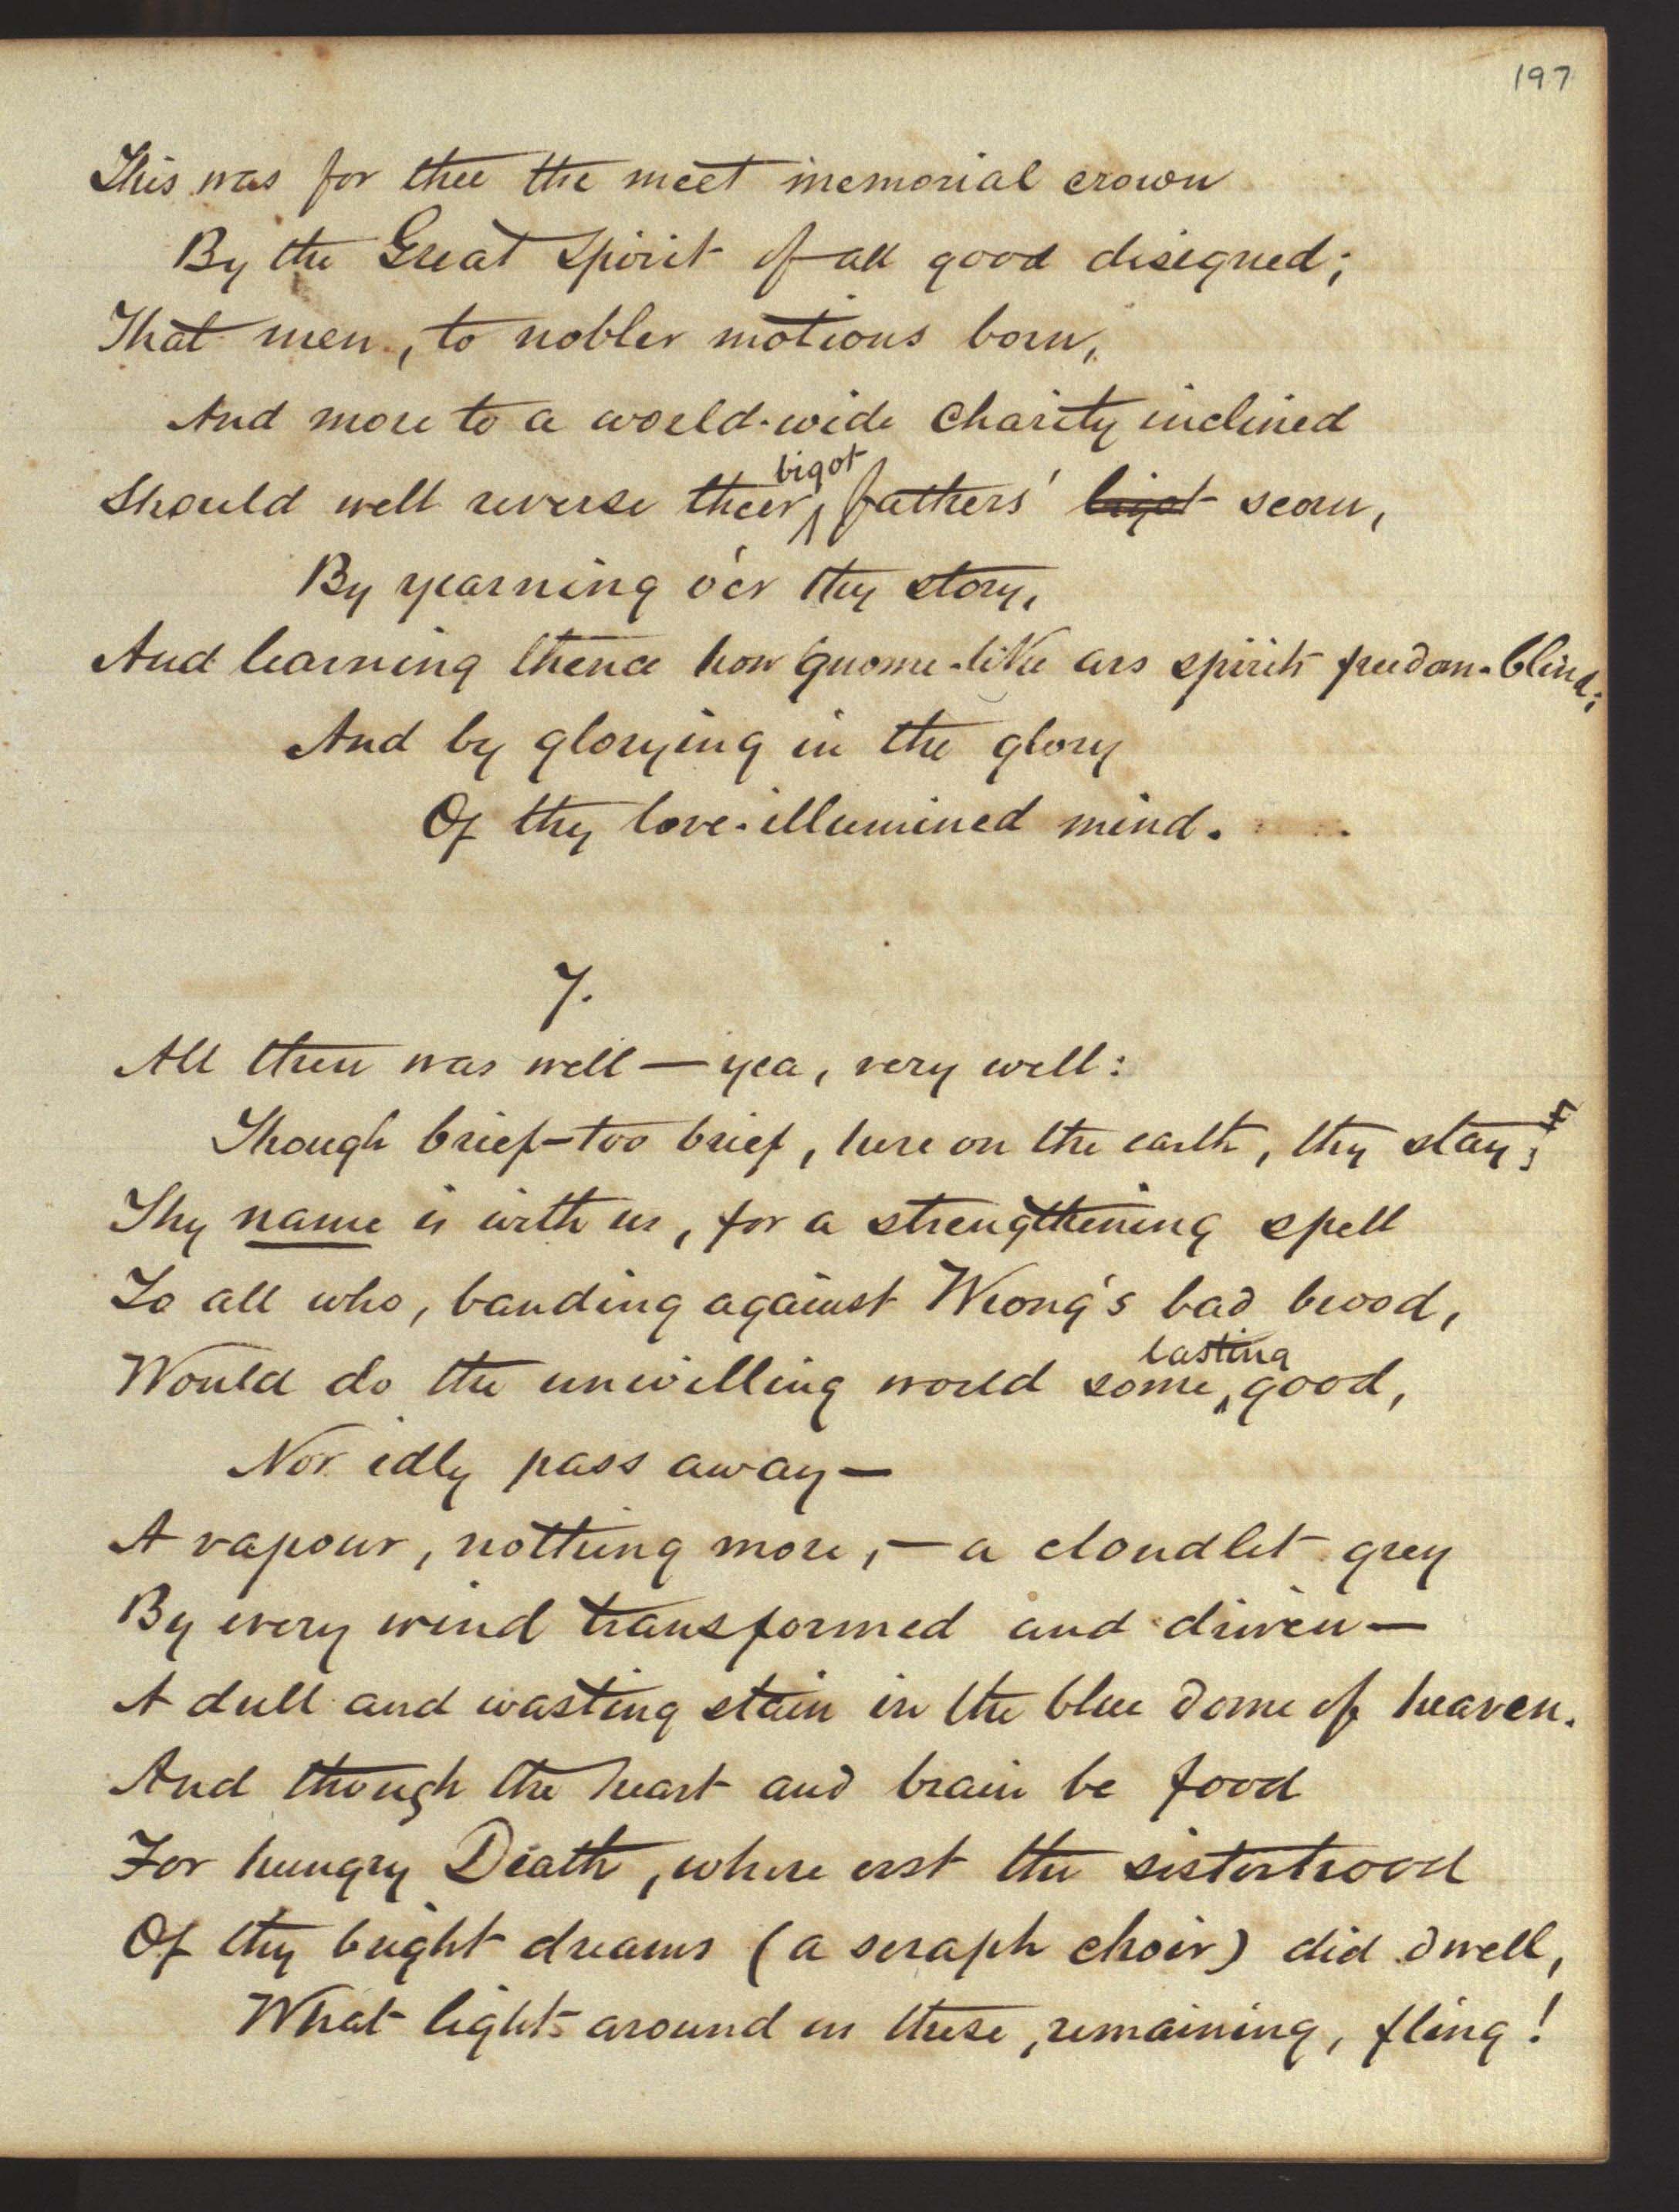 197
This was for thee the meet memorial crown
By the Great Spirit of all good designed;
That men, to nobler motions born,
And more to a world-wide Charity inclined
Should well reverse their bigot fathers' bigot scorn,
By yearning o'er thy story,
And learning thence how gnome-like are spirits freedom-blind;
And by glorying in the glory
Of thy love-illumined mind.
7.
All then was well — yea, very well:
Though brief—too brief, here on the earth, thy stay;
Thy name is with us, for a strengthening spell
To all who, banding against Wrong's bad brood,
Would do the unwilling world some lasting good,
Nor idly pass away—
A vapour, nothing more, — a cloudlet grey
By every wind transformed and driven—
A dull and wasting stain in the blue dome of heaven.
And though the heart and brain be food
For hungry Death, where erst the sisterhood
Of thy bright dreams (a seraph choir) did dwell,
What lights around us these, remaining, fling!